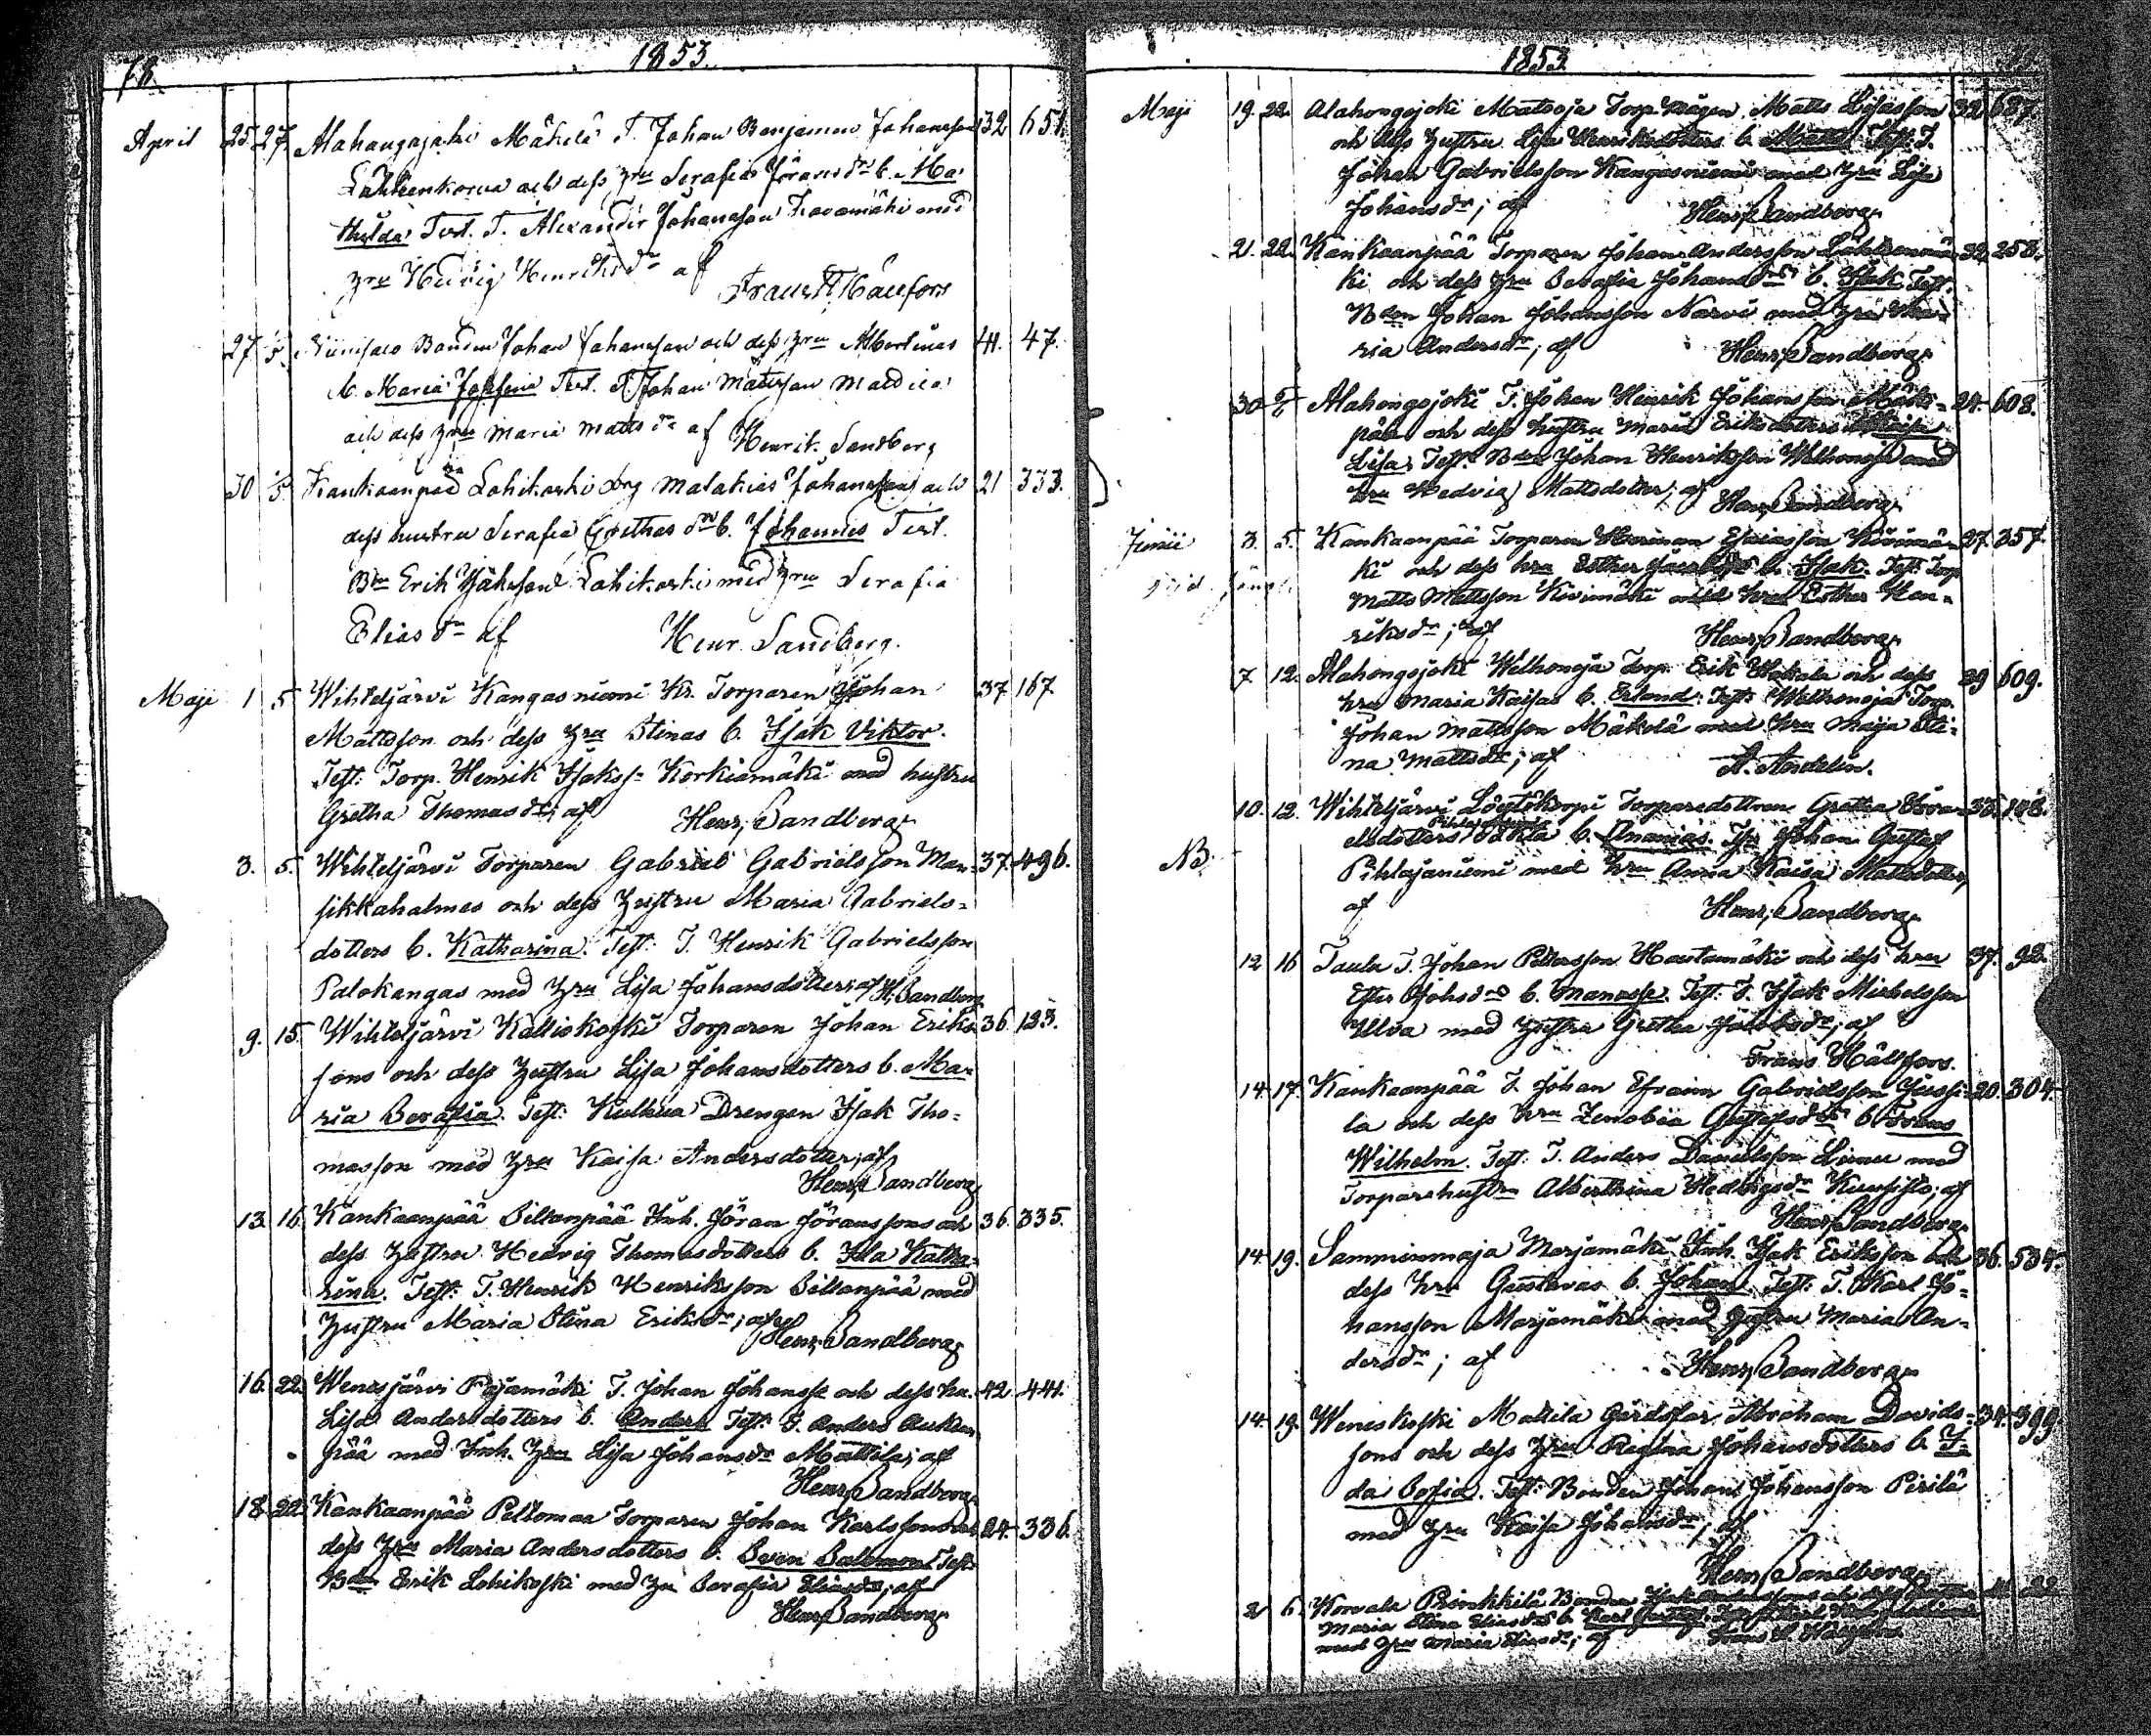 78.
1853.
April 25. 27. Alahongajoki Mäkelä T. Johan Benjamin Johansson 32 651.
Lähteenkorva och dess hru Serafia Jörans dr b. Ma-
thilda Test. T. Alexander Johansson Kavamäki med
hru Hedvig Henriks dr af
Frans H Hällfors
27 5 Niinisalo Bonden Johan Johansson och dess hru Albertinas 41. 47.
b. Maria Josefina Test. T. Johan Mattsson
och dess hru Maria Matts dr af Henrik Sandberg
30 5 Kankaanpää Lohikoski Drg Malakias Johansson och 21 333.
dess hustru Serafia Grethas dr b. Johannes Test.
Bdn Erik Isaksson Lohikoski med hru Serafia
Elias dr af Henr. Sandberg.
Maji 1 5 Wihteljärvi Kangasniemi Kr. Torparen Johan 37 167
Mattsson och dess hru Stinas b. Isak Viktor.
Test: Torp. Henrik Isakss: Korkiamäki med hustru
Gretha Thomas dr; af Henr. Sandberg
3. 5. Wihteljärvi Torparen Gabriel Gabrielsson Man- 37. 496.
sikkaholmes och dess hustru Maria Gabriels-
dotters b. Katharina. Test: T. Henrik Gabrielsson
Palokangas med hru Lisa Johansdotter; af H. Sandberg
9. 15. Wihteljärvi Kalliokoski Torparen Johan Eriks- 36. 123.
sons och dess hustru Lisa Johansdotters b. Ma-
ria Serafia. Test: Drengen Isak Tho-
masson med hru Kaisa Andersdotter; af
Henr. Sandberg
13. 16. Kankaanpää Siltanpää Inh. Jöran Jöranssons och 36. 335.
dess hustru Hedvig Thomasdotters b. Ida Katha-
rina. Test: T. Henrik Henriksson Siltanpää med
hustru Maria Stina Eriks dr; af Henr. Sandberg
16. 22. Wenesjärvi Rajamäki T. Johan Johanss: och dess hu. 42. 441.
Lisa Andersdotters b. Anders Test: T. Anders
pää med Inh. hru Lisa Johans dr Mattila; af
Henr. Sandberg
18. 22. Kankaanpää Peltomaa Torparen Johan Karlssons och 24. 336.
dess hru Maria Andersdotters b. Sven Salomon Test:
Bdn Erik Lohikoski med hu Serafia Elias dr; af
Henr. Sandberg
1853.
Maji 19. 22. Alahongojoki Matsoja Torp. Mågen Matts Lisasson 32 687.
och dess hustru Lisa Henriksdotters b. Matts Test: T.
Johan Gabrielsson Kangasniemi med hru Lisa
Johans dr; af Henr. Sandberg
21. 22. Kankaanpää Torparen Johan Andersson Lähteenmä- 32. 258.
ki och dess hru Serafia Johans drs b. Isak Test:
Bden Johan Johansson Narvi med hru Ma-
ria Anders dr; af Henr. Sandberg
30 5/6 Alahongojoki T. Johan Henrik Johansson Mäki- 24. 608.
pää och dess hustru Maria Eriksdotters b. Maija
Lisa; Test: Bden Johan Henriksson Welhonoja med
hru Hedvig Mattsdotter; af
Henr. Sandberg
Junii 3. 5. Kankaanpää Torparen Herman Esaiasson Kivimä- 27. 357.
ki och dess hru Esther b. Isak. Test: Torp
Matts Mattsson Kivimäki med hru Esther Hen-
riks dr; af Henr. Sandberg
7 12. Alahongojoki Welhonoja Torp. Erik och dess 29 609.
hru Maria Kaisas b. Erland. Test: Welhonoja Torp.
Johan Mattsson Mäkelä med hru Maija Sti-
na Matts dr; af A. Andelin.
10. 12. Wihteljärvi Löytökorpi Torparedottren Gretha 33. 108.
b. Ananias. Johan Gustaf
NB. Pihlajaniemi med hru Anna Kaisa Mattsdotter,
af Henr. Sandberg
12 16 Taula T. Johan Pettersson Hautamäki och dess hru 37. 92.
Ester Johs drs b. Manasse. Test: T. Isak Michelsson
Ulva med hustru Gretha Jakobs dr; af
Frans Hällfors.
14 17. Kankaanpää T. Johan Efraim Gabrielsson Jussi- 20. 304.
la och dess hru Zenobia Gustafs drs b. Frans
Wilhelm. Test: T. Anders Danielsson med
Torparehustru Albertina Hedvigs dr Kuusisto; af
Henr. Sandberg
14 19. Samminmaja Marjamäki Inh. Isak Eriksson och 36. 534.
dess hru Gustavas b. Johan Test: T. Karl Jo-
hansson Marjamäki med hustru Maria An-
ders dr; af Henr. Sandberg
14 19. Weneskoski Mattila Gårdsfar. Abraham Davids- 34. 399.
sons och dess hru Regina Johansdotters b. I-
da Sofia. Test: Bonden Johan Johansson Perilä
med hru Kaisa Johans dr; af
Henr. Sandberg
2 6. Worvala Prinkkilä Bonden 22
Maria Stina Elias drs b. Karl Gustaf.
med hru Maria Elias dr; af Frans H Hällfors